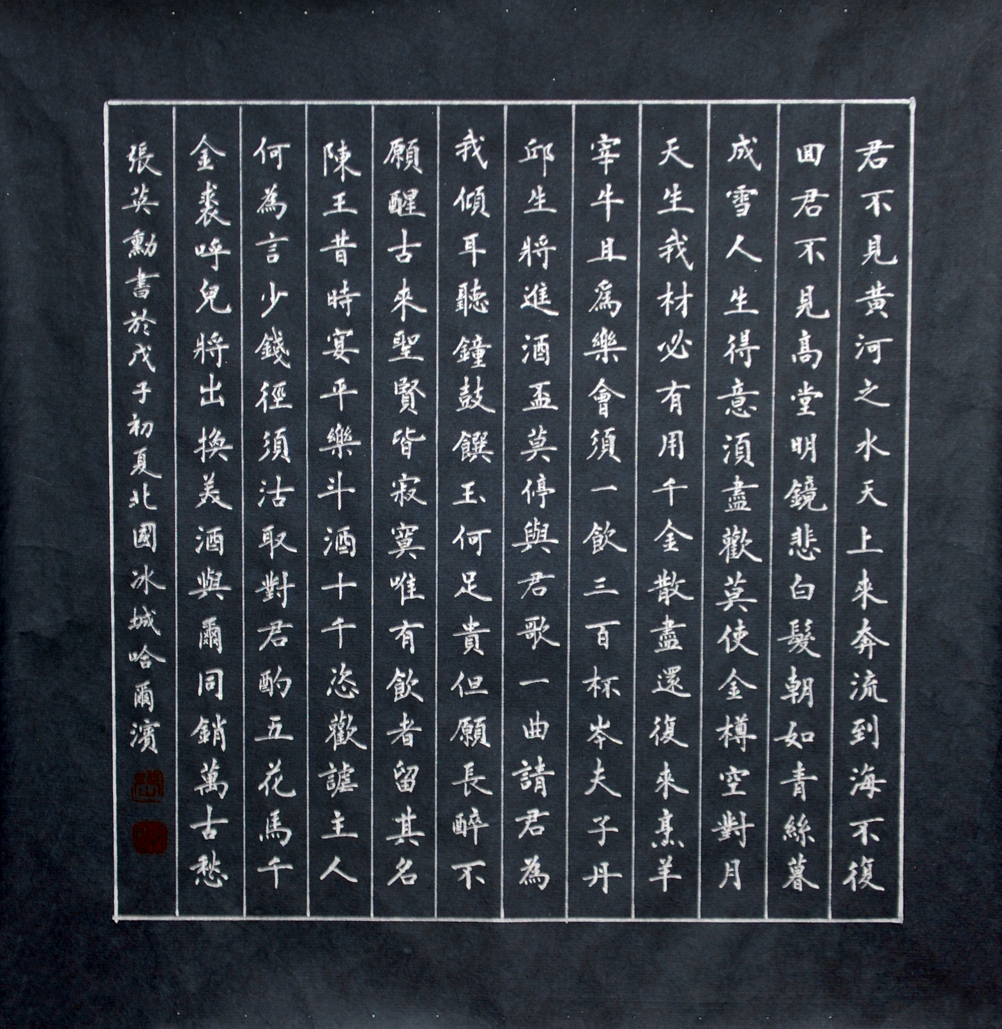 君不見黃河之水天上來奔流到海不復
回君不見高堂明鏡悲白髮朝如青絲暮
成雪人生得意須盡歡莫使金樽空對月
天生我材必有用千金散盡還復來烹羊
宰牛且爲樂會須一飲三百杯岑夫子丹
邱生將進酒盃莫停與君歌一曲請君為
我傾耳聽鐘鼓饌玉何足貴但願長醉不
願醒古來聖賢皆寂寞唯有飲者留其名
陳王昔時宴平樂斗酒十千恣歡謔主人
何為言少錢徑須沽取對君酌五花馬千
金裘呼兒將出換美酒與爾同銷萬古愁
張英勳書於戊子初夏北國冰城哈爾濱